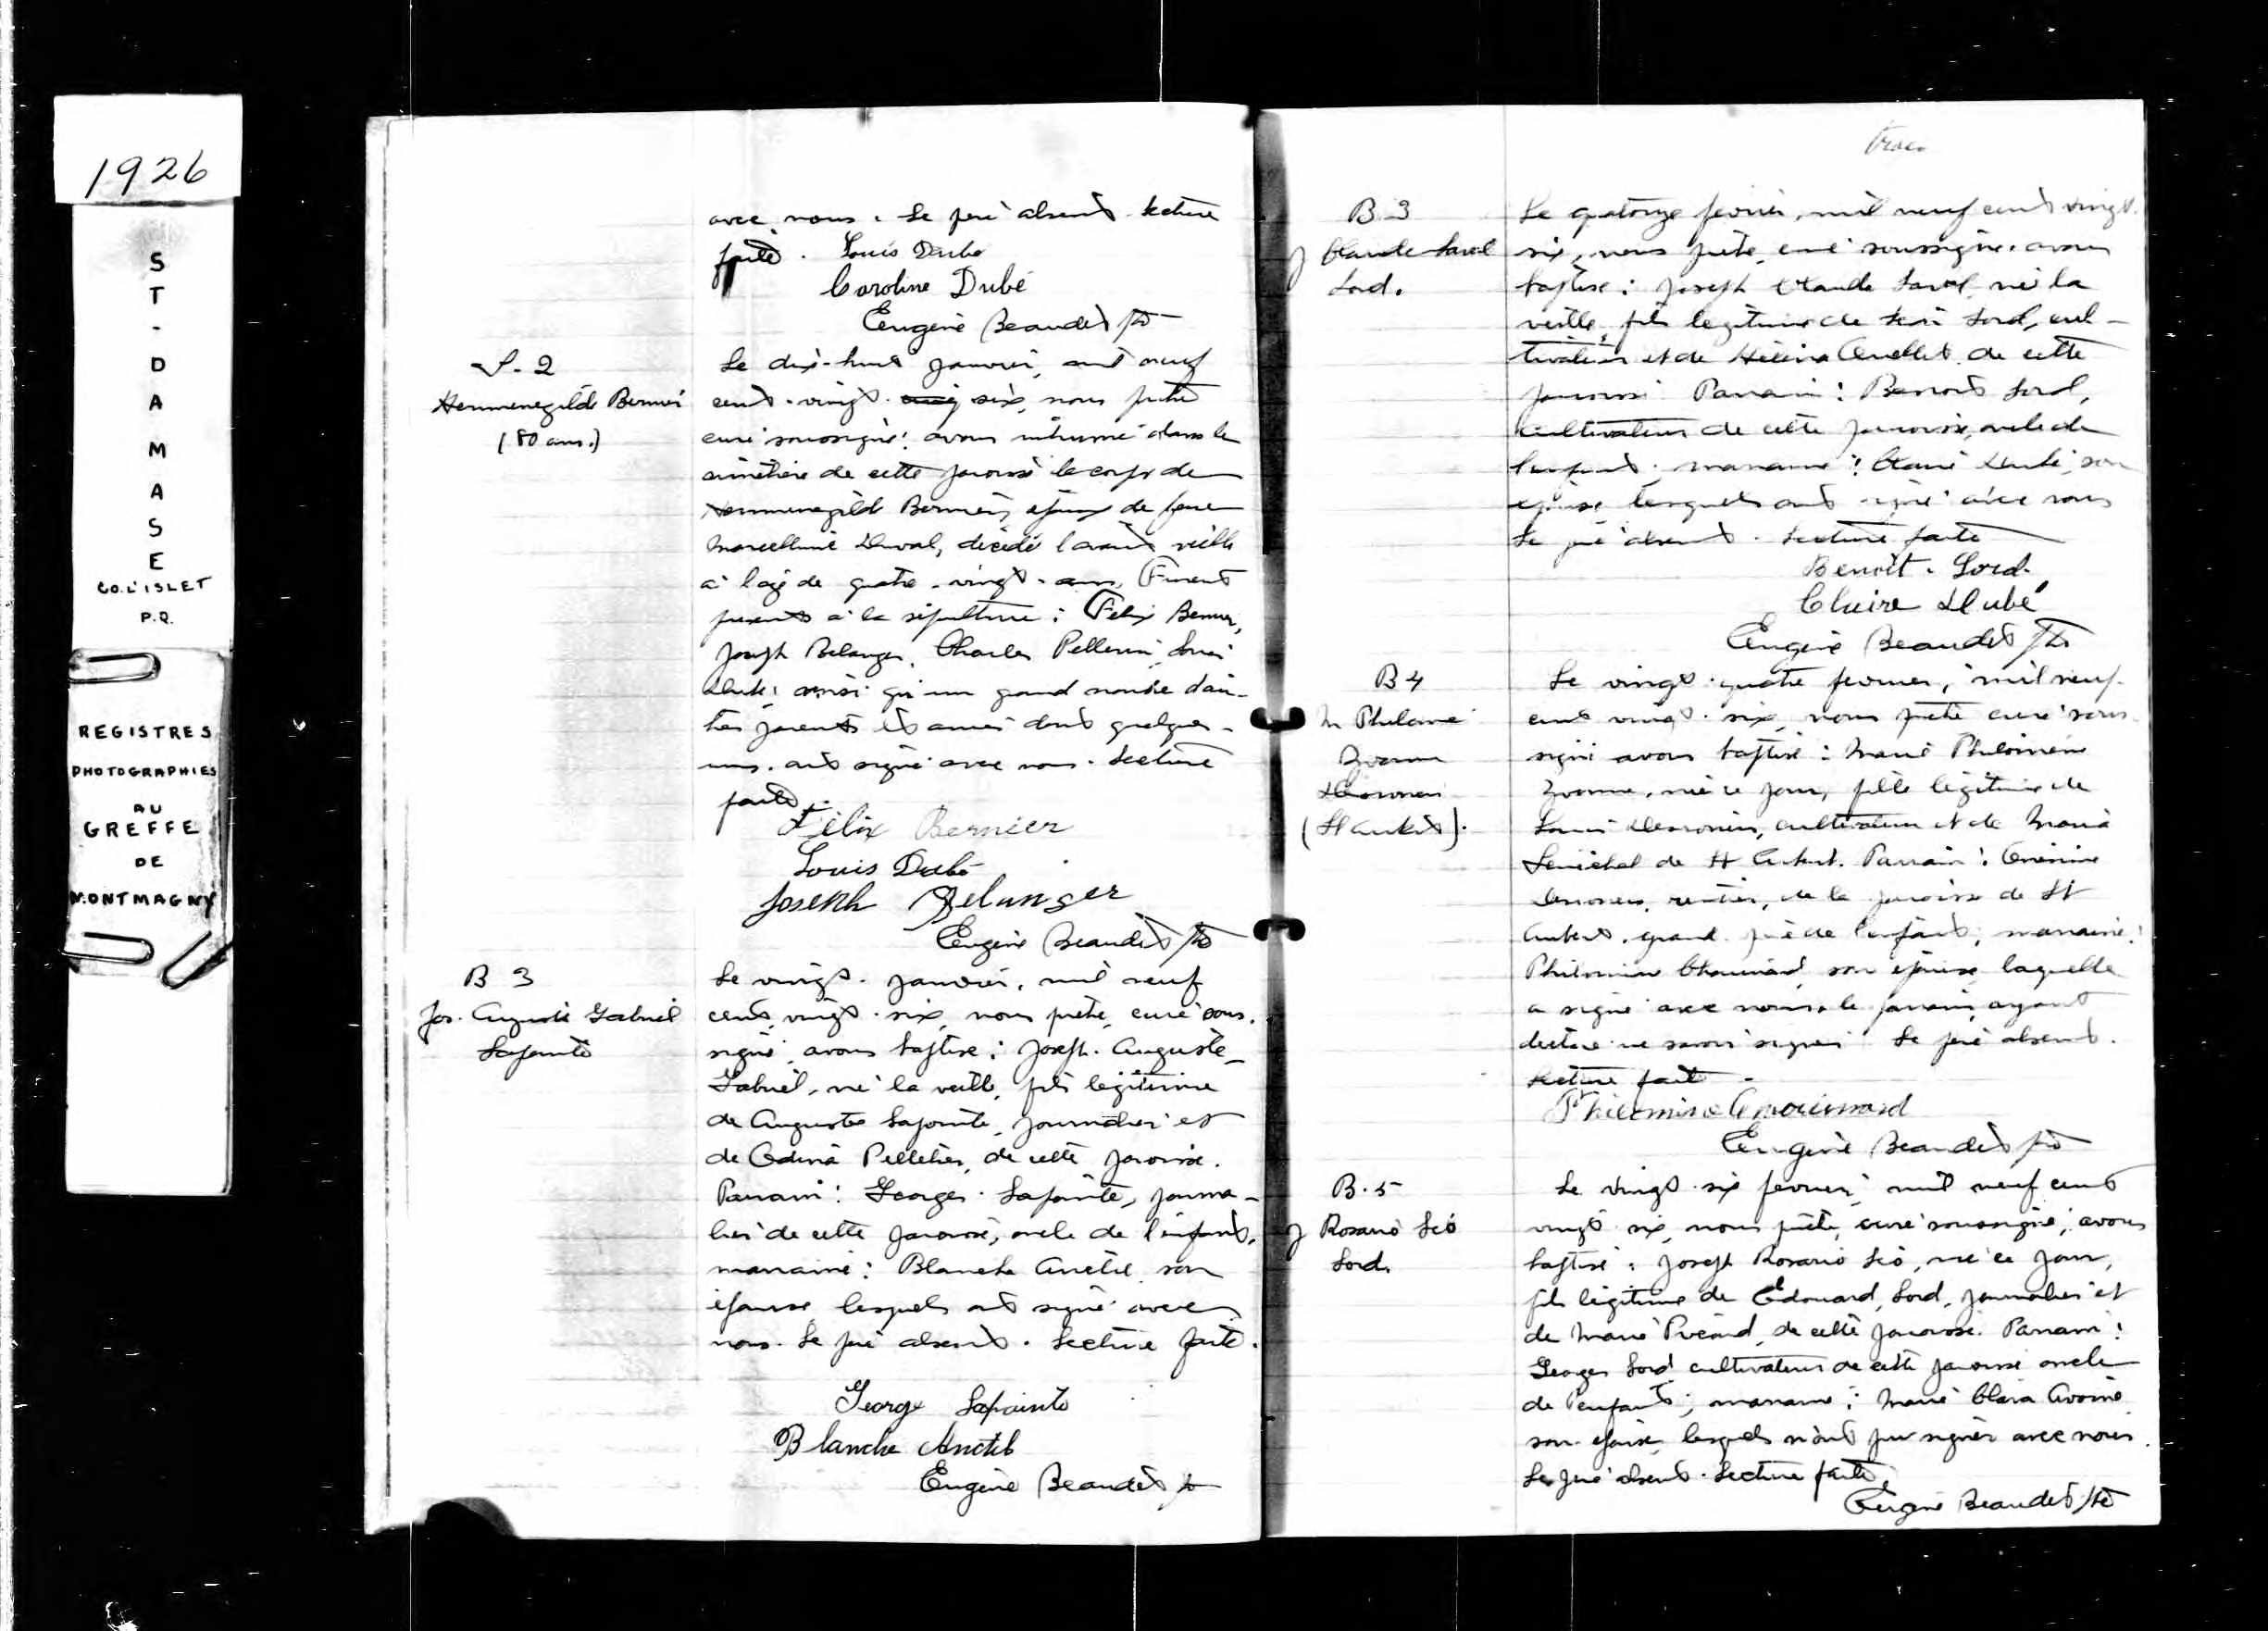 1926
ST-DAMASE
CO. L'ISLET
P.Q.
REGISTRES
PHOTOGRAPHIES
AU
GREFFE
DE
MONTMAGNY
avec nous. Le père absent. Lecture
faite. Louis Dubé
Caroline Dubé
Eugène Beaudet ptre
S. 2
Hermenegilde Bernier
(80 ans.)
Le dix-huit janvier, mil neuf
cent-vingt-six, nous prêtre
curé soussigné avons inhumé dans le
cimétière de cette paroisse le corps de
Hermenegilde Bernier, époux de feue
Marcelline Duval, décédé l'avant veille
à l'âge de quatre-vingt-ans. Furent
présents à la sépulture: Félix Bernier,
Joseph Belanger, Charles Pellerin, Louis
Dubé, ainsi qu'un grand nombre d'au-
tres parents et amis dont quelques-
uns ont signé avec nous. Lecture
faite.
Félix Bernier
Louis Dubé
Joseph Belanger
Eugène Beaudet ptre
B 3
Jos. Auguste Gabriel
Lapointe
Le vingt-janvier, mil neuf
cent, vingt-six, nous prêtre, curé sous-
signé, avons baptisé: Joseph-Auguste-
Gabriel, né la veille, fils légitime
de Auguste Lapointe, journalier et
de Odina Pelletier, de cette paroisse.
Parrain: Georges Lapointe, journa-
lier de cette paroisse, oncle de l'enfant,
marraine: Blanche Anctil son
épouse lesquels ont signé avec
nous. Le père absent. Lecture faite.
George Lapointe
Blanche Anctil
Eugène Beaudet ptre
trois
B 3
J Claude Laval
Lord.
Le quatorze février, mil neuf cent vingt-
six, nous prêtre, curé soussigné avons
baptisé: Joseph Claude Laval, né la
veille, fils légitime de Lord, cul-
tivateur et de Ouellet de cette
paroisse. Parrain: Benoit Lord,
cultivateur de cette paroisse, oncle de
l'enfant, marraine: Claire Dubé, son
épouse lesquels ont signé avec nous
Le père absent. Lecture faite
Benoît. Lord.
Claire Dubé
Eugène Beaudet ptre
B 4
M Philomène
Yvonne
(St Aubert).
Le vingt-quatre février, mil neuf-
cent vingt-six, nous prêtre curé sous-
signé avons baptisé: Marie Philomène
Yvonne, née ce jour, fille légitime de
Louis cultivateur et de Maria
Sénéchal de St Aubert. Parrain:
rentier, de la paroisse de St
Aubert, grand-père de l'enfant, marraine:
Philomène Chouinard, son épouse, laquelle
a signé avec nous, le parrain ayant
déclaré ne savoir signer. Le père absent.
Lecture faite.
Philomine Chouinard
Eugène Beaudet ptre
B. 5
J Rosario Léo
Lord.
Le vingt-six février, mil neuf cent
vingt six, nous prêtre, curé soussigné, avons
baptisé: Joseph Rosario Léo, né ce jour,
fils légitime de Edouard Lord, journalier et
de Marie Picard, de cette paroisse. Parrain:
Georges Lord cultivateur de cette paroisse oncle
de l'enfant; marraine: Marie Clara Avoine
son épouse, lesquels n'ont pu signer avec nous.
Le père absent. Lecture faite.
Eugène Beaudet ptre